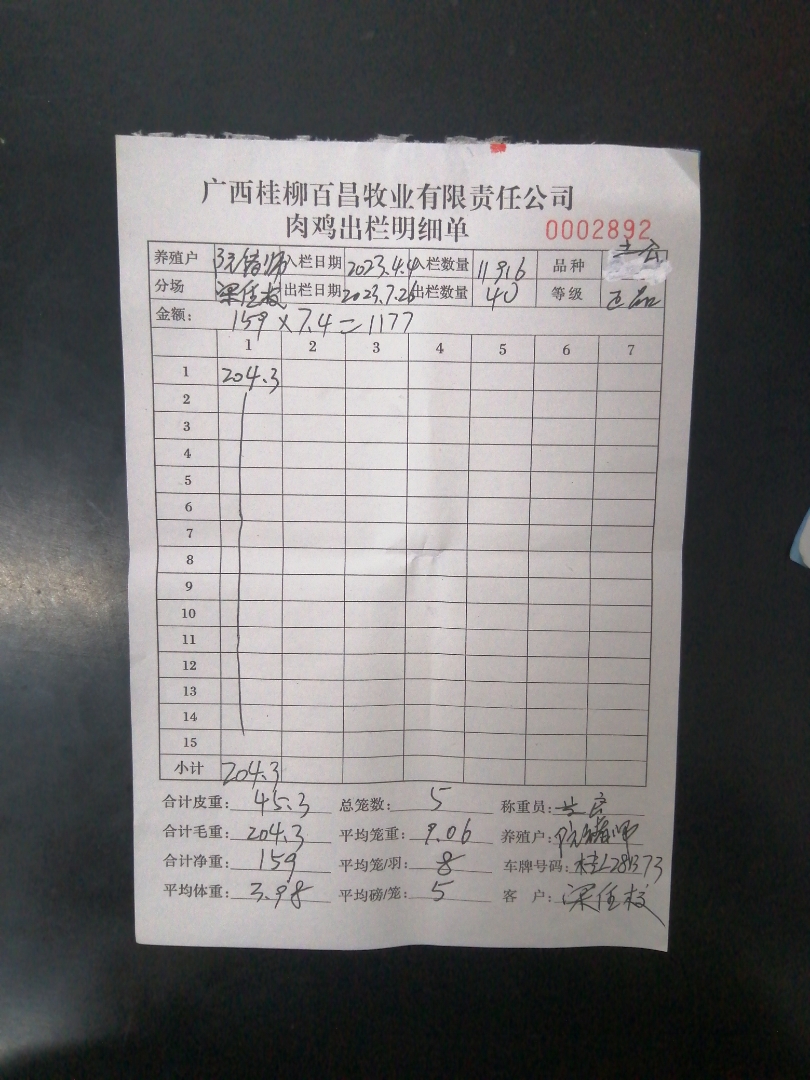 广西桂柳百昌牧业有限责任公司
肉鸡出栏明细单 0002892
养殖户 入栏日期 2023.4.4 入栏数量 11916 品种
分场 出栏日期 2023.7.26 出栏数量 40 等级 正品
金额： 159×7.4=1177
1 2 3 4 5 6 7
1 204.3
2
3
4
5
6
7
8
9
10
11
12
13
14
15
小计 204.3
合计皮重： 45.3 总笼数： 5 称重员：
合计毛重： 204.3 平均笼重： 9.06 养殖户：
合计净重： 159 平均笼/羽： 8 车牌号码：
平均体重： 3.98 平均磅/笼： 5 客 户：